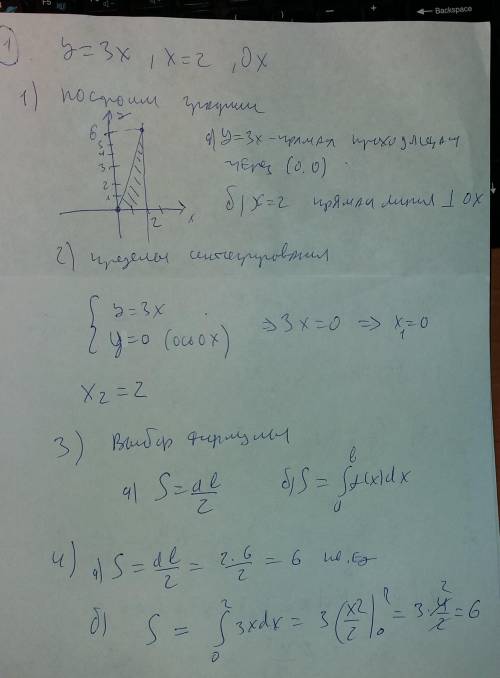 ← Backspace
1) y=3x , x=2 , Ox
1) построим графики
y
6
5
4
3
2
1
2
x
а) y=3x - прямая проходящая
через (0,0)
б) x=2 прямая линия ⊥ OX
2) пределы интегрирования
{ y=3x
y=0 (ось OX) ⇒ 3x=0 ⇒ x₁=0
x₂=2
3) Выбор формулы
а) S = ab/2 б) S = ∫ₐᵇ f(x)dx
4) а) S = ab/2 = 2·6/2 = 6 кв. ед
б) S = ∫₀² 3xdx = 3(x2/2)|₀² = 3·4/2 = 6